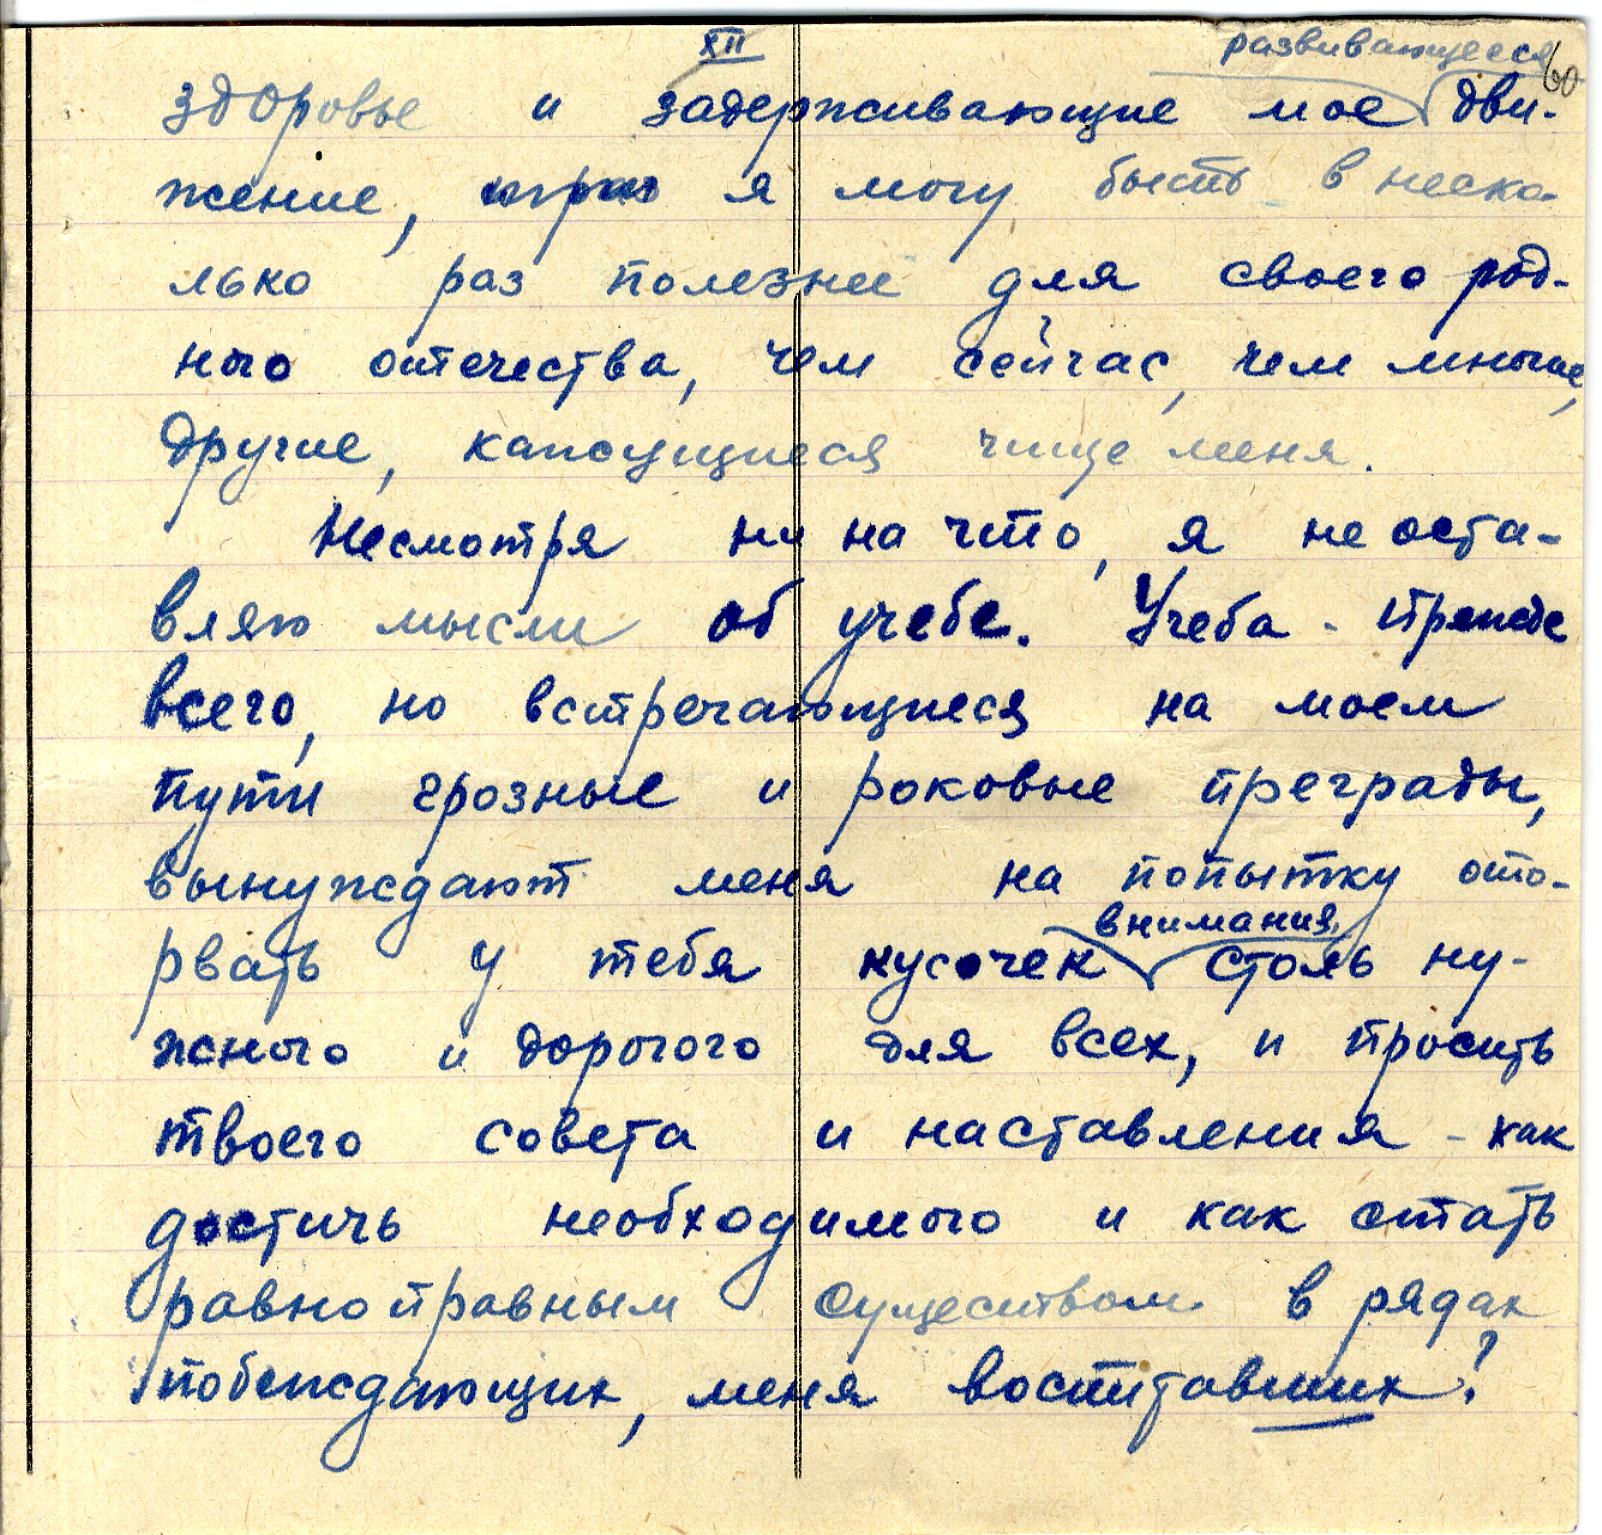 XII
развивающееся 60
здоровье и задерживающие мое дви-
жение, я могу быть в неско-
лько раз полезнее для своего род-
ного отечества, чем сейчас, чем многие,
другие, кажущиеся чище меня.
Несмотря ни на что, я не оста-
вляю мысли об учебе. Учеба - прежде
всего, но встречающиеся на моем
пути грозные и роковые преграды,
вынуждают меня на попытку ото-
внимания,
рвать у тебя кусочек столь ну-
жного и дорогого для всех, и просить
твоего совета и наставления - как
достичь необходимого и как стать
равноправным существом в рядах
побеждающих, меня воспитавших?